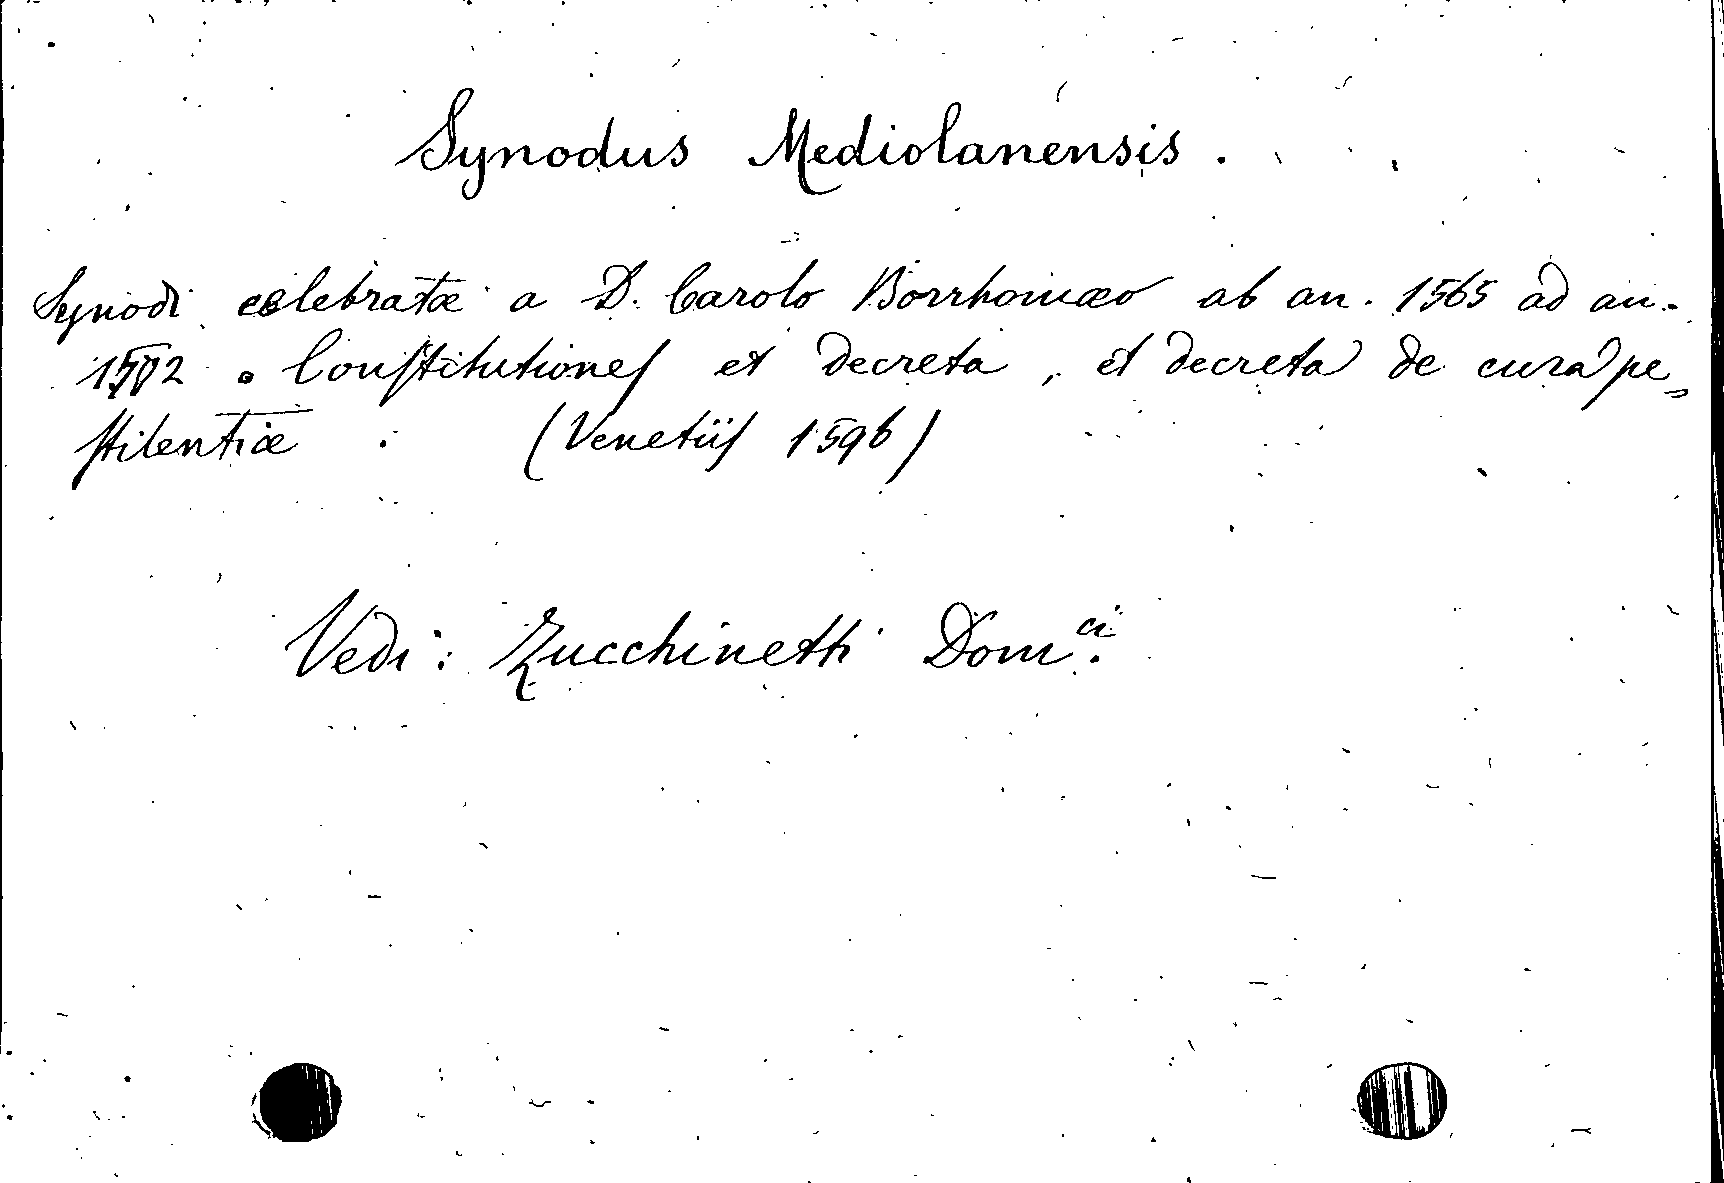 Synodus Mediolanensis.
Synodi celebratæ a D. Carolo Borrhomæo ab an. 1565 ad an.
Conſtitutioneſ et decreta, et decreta de cura pe„
ſtilentiæ. (Venetiiſ 1596)
Vedi: Zucchinetti Dom.ci